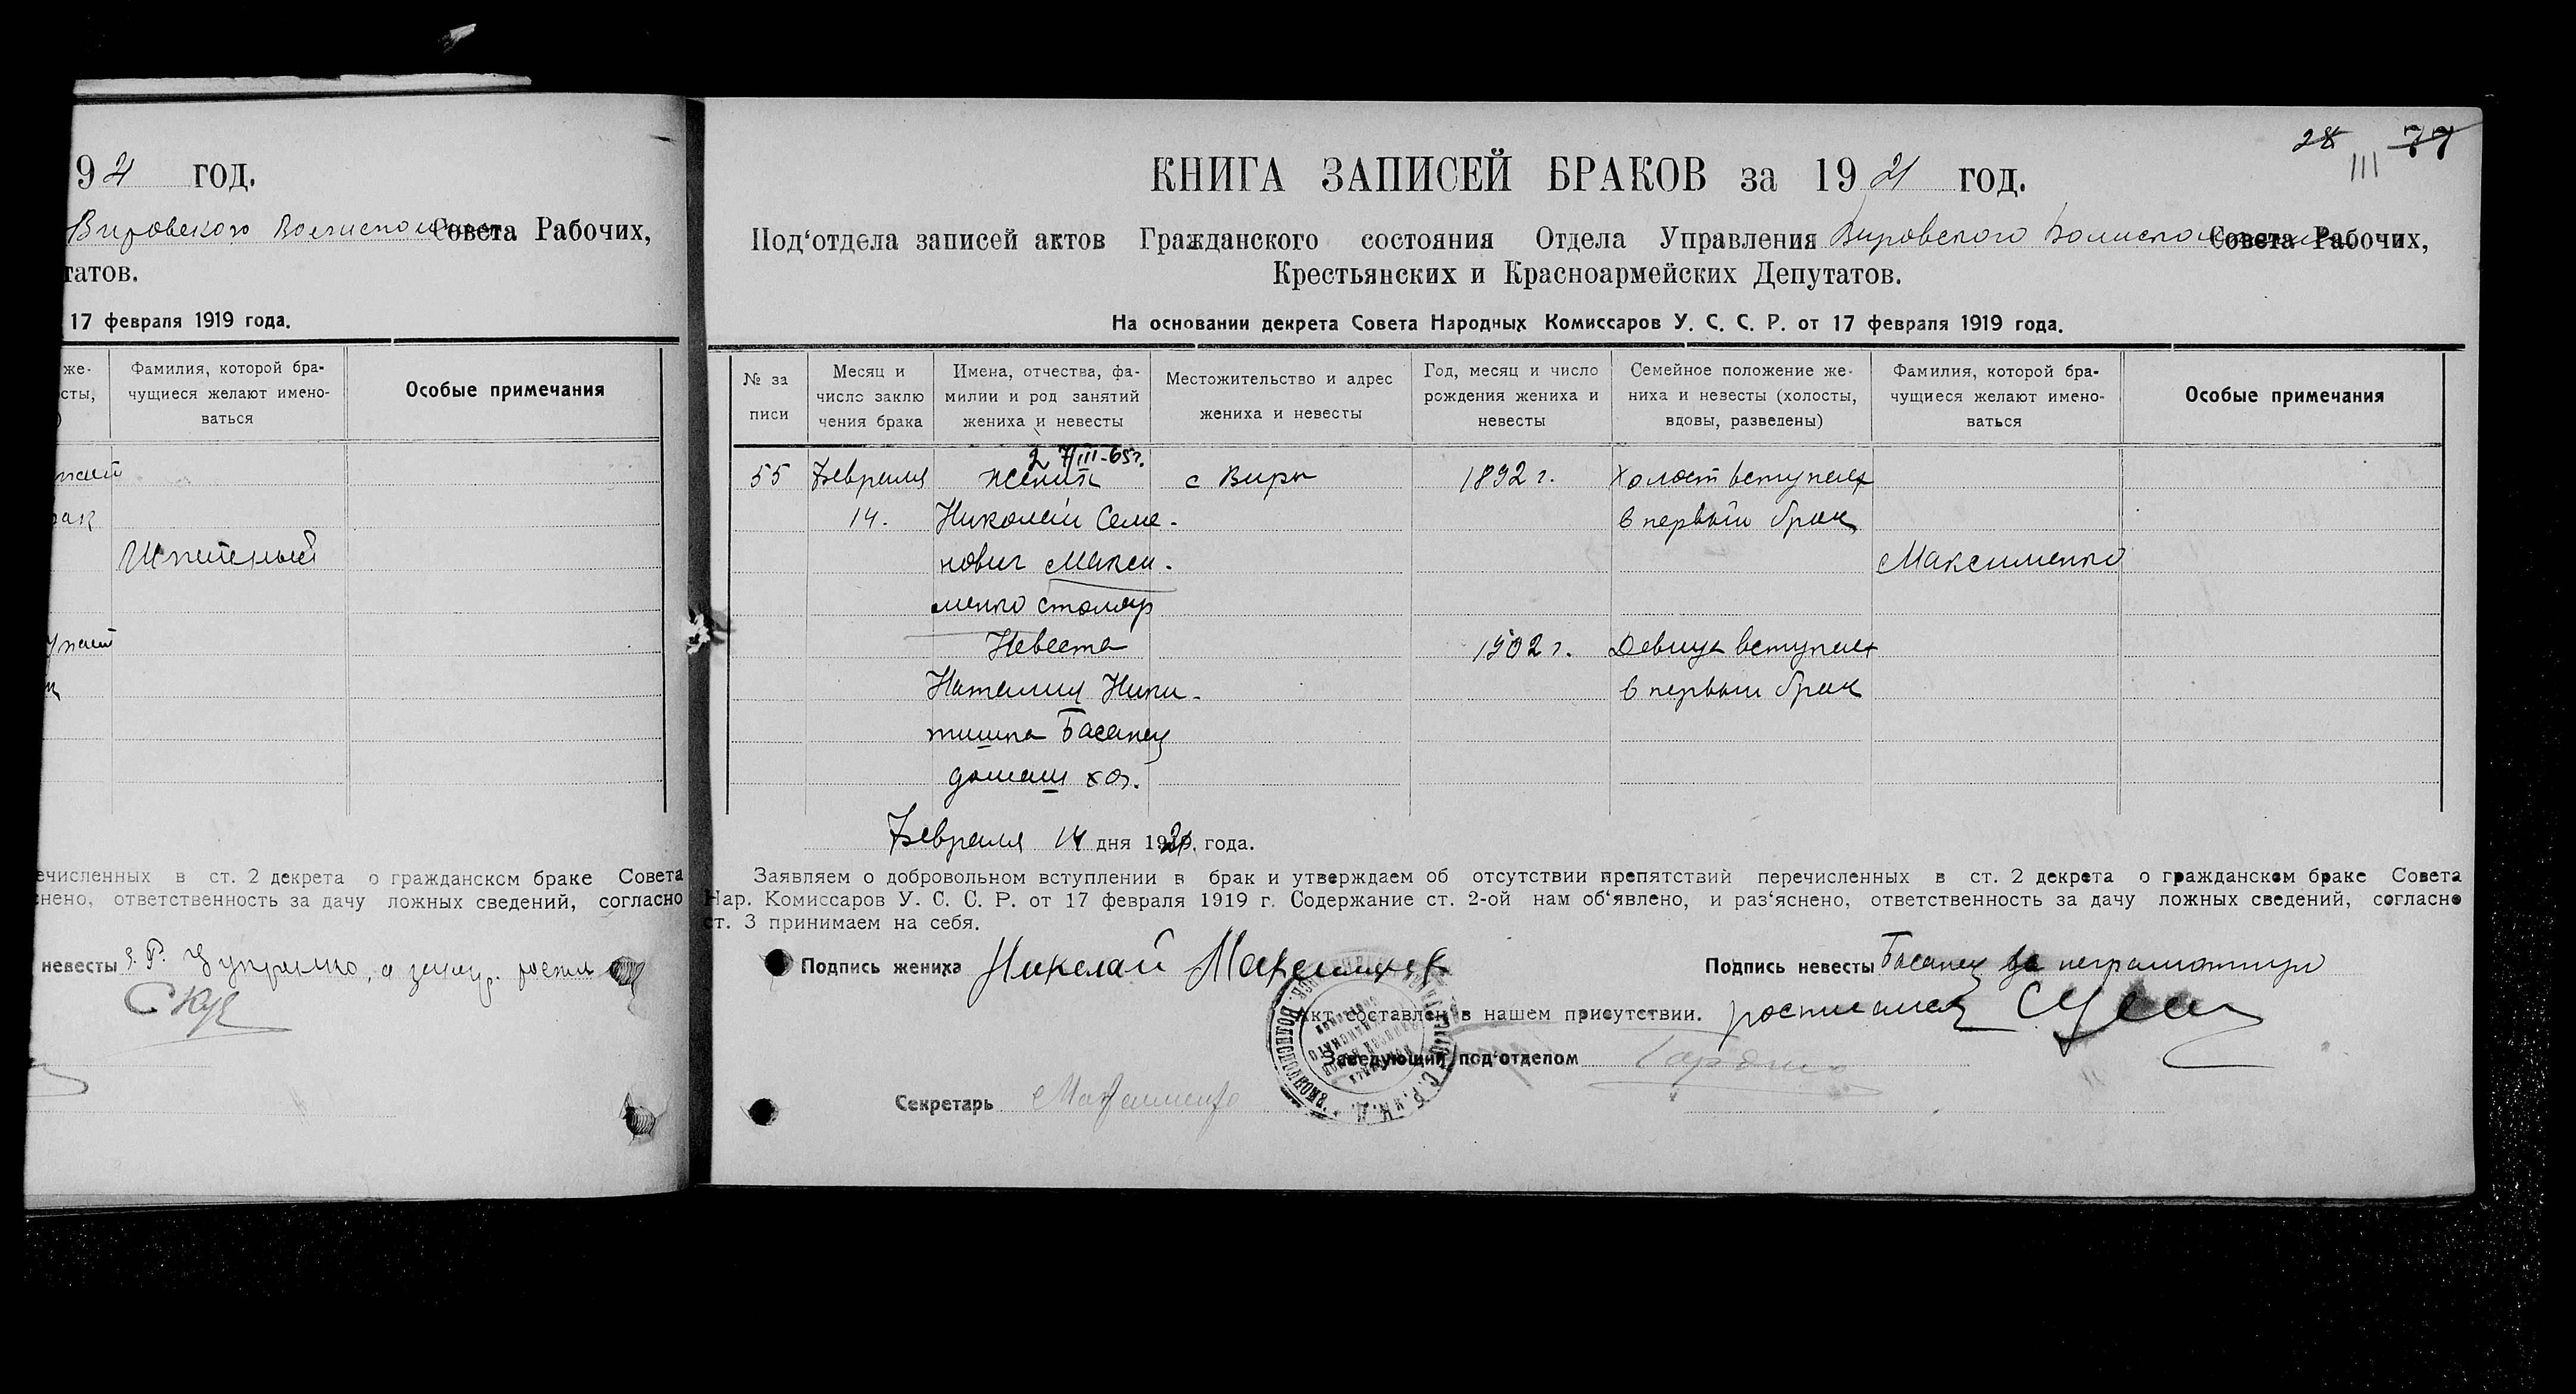 921 год.
Вировского Волисполкома Совета Рабочих,
татов.
17 февраля 1919 года.
же-
сты,
)
Фамилия, которой бра-
чущиеся желают имено-
ваться
Особые примечания
рак
ечисленных в ст. 2 декрета о гражданском браке Совета
снено, ответственность за дачу ложных сведений, согласно
невесты
28 77
111
КНИГА ЗАПИСЕЙ БРАКОВ за 1921 год.
Под'отдела записей актов Гражданского состояния Отдела Управления Вировского Волисполкома Совета Рабочих,
Крестьянских и Красноармейских Депутатов.
На основании декрета Совета Народных Комиссаров У. С. С. Р. от 17 февраля 1919 года.
№ за
писи
Месяц и
число заклю
чения брака
Имена, отчества, фа-
милии и род занятий
жениха и невесты
Местожительство и адрес
жениха и невесты
Год, месяц и число
рождения жениха и
невесты
Семейное положение же-
ниха и невесты (холосты,
вдовы, разведены)
Фамилия, которой бра-
чущиеся желают имено-
ваться
Особые примечания
2 7/III-65г.
55 Февраля Жених с Виры 1892 г. Холост вступает
14. Николай Семе- в первый брак
нович Макси- Максименко
менко столяр
Невеста 1902 г. Девица вступает
Наталия Ники- в первый брак
тишна Басанец
домаш хоз.
Февраля 14 дня 1921 года.
Заявляем о добровольном вступлении в брак и утверждаем об отсутствии препятствий перечисленных в ст. 2 декрета о гражданском браке Совета
Нар. Комиссаров У. С. С. Р. от 17 февраля 1919 г. Содержание ст. 2-ой нам об'явлено, и раз'яснено, ответственность за дачу ложных сведений, согласно
ст. 3 принимаем на себя.
Подпись жениха Николай Максименко Подпись невесты Басанец за неграмотную
Акт составлен в нашем присутствии. росписался
Заведующий под'отделом
Секретарь Максименко